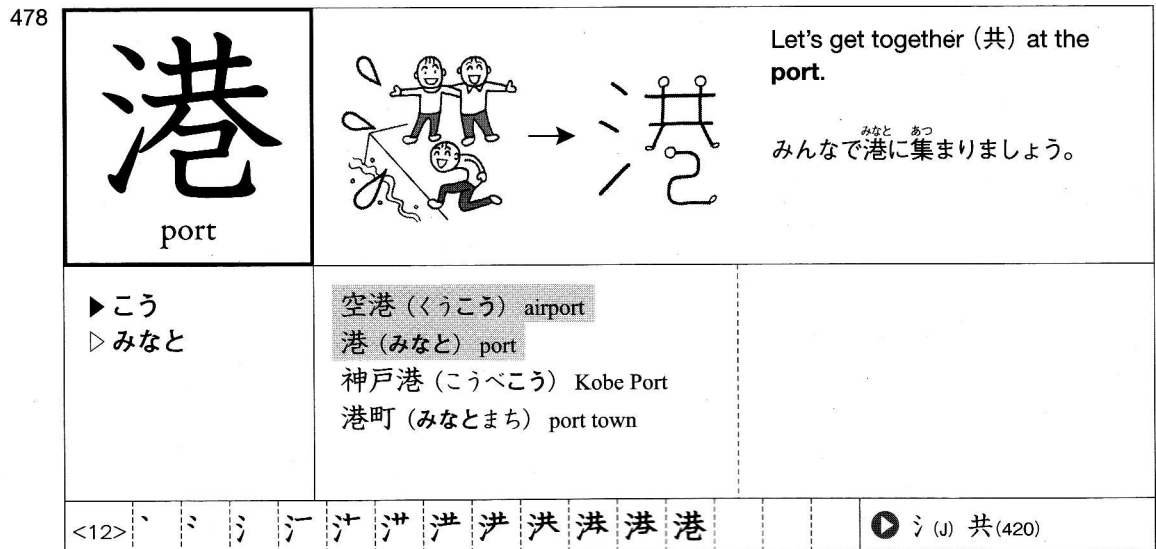 478
港
port
Let's get together (共) at the
port.
みなと あつ
みんなで港に集まりましょう。
▶こう
▷みなと
空港（くうこう） airport
港（みなと） port
神戸港（こうべこう） Kobe Port
港町（みなとまち） port town
<12>
港
氵(J) 共(420)